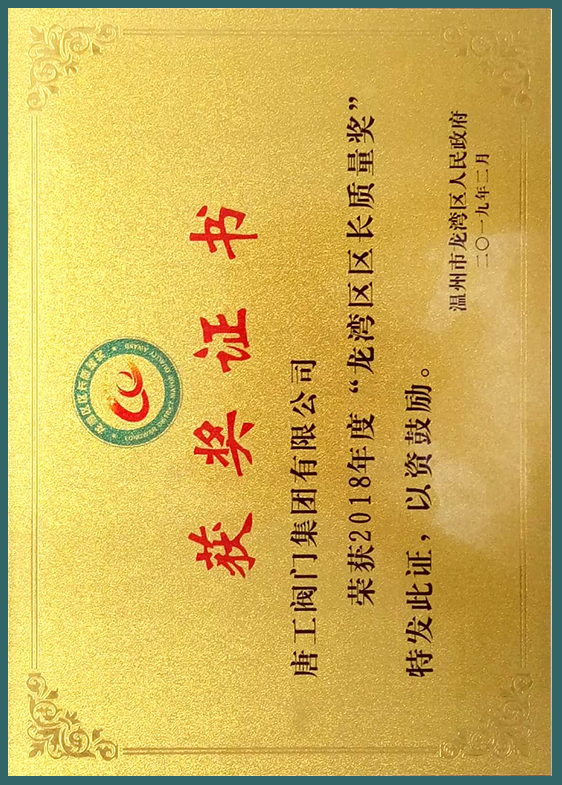 龙湾区区长质量奖
获奖证书
唐工阀门集团有限公司
荣获2018年度“龙湾区区长质量奖”
特发此证，以资鼓励。
温州市龙湾区人民政府
二〇一九年二月